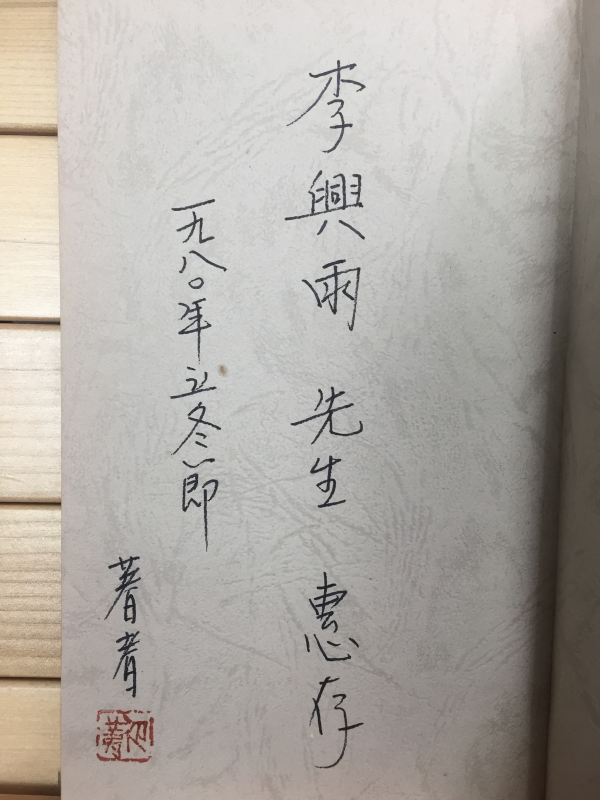 李興雨 先生 惠存
一九八〇年立冬節
著者